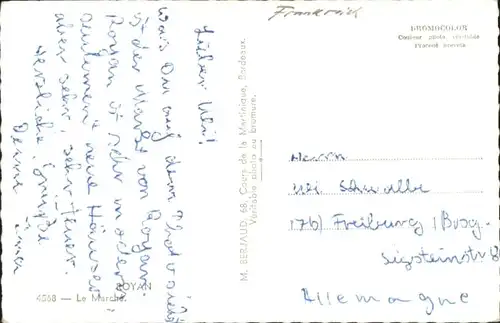 Frankreich
BROMOCOLOR
Couleur photo véritable
Procédé breveté
Lieber Uli!
Was Du auf dem Photo siehst
ist der Markt von Royan.
Royan ist sehr modern,
neue Häuser
aber sehr, sehr teuer.
Herzliche Grüße
Deine
M. BERJAUD, 68, Cours de la Martinique, Bordeaux.
Véritable photo au bromure.
ROYAN
4568 - Le Marché.
Herrn
Uli Schwalbe
17b) Freiburg / Brsg.
Sigsteinstr 8
Allemagne